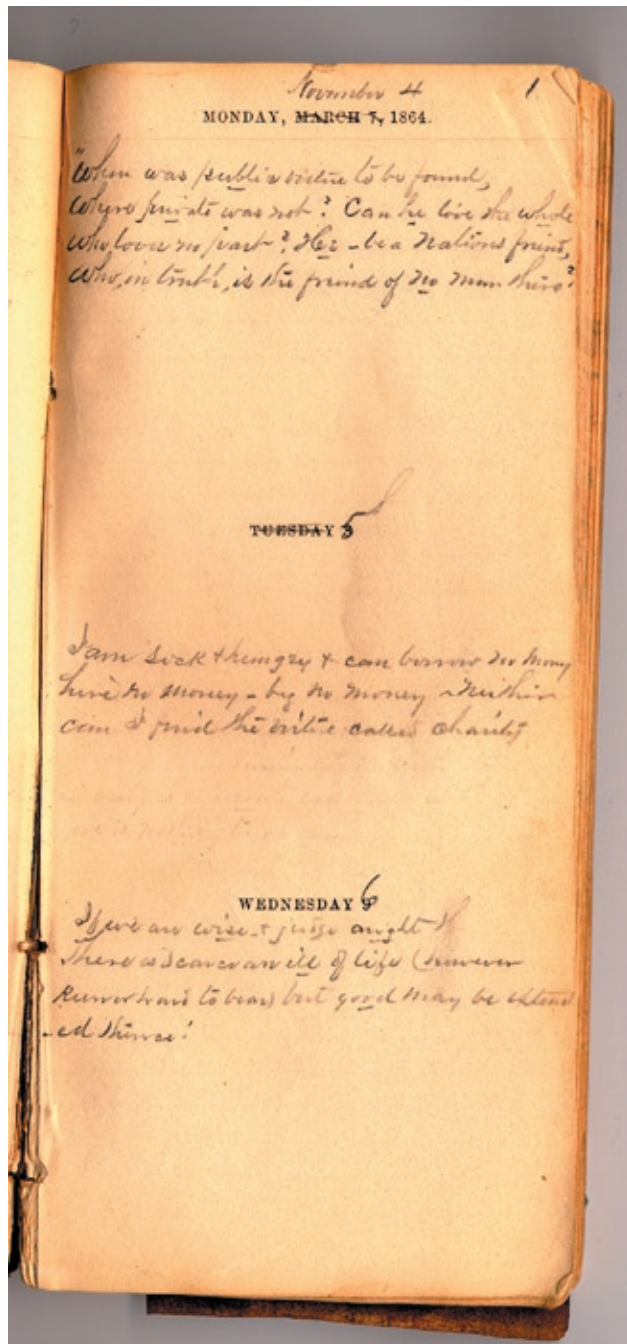 November 4 1
MONDAY, MARCH 7, 1864.
"When was public virtue to be found,
Where private was not? Can he love the whole
Who loves no part? He - be a nations friend,
Who, in truth, is the friend of no man there?
TUESDAY 5
I am sick & hungry & can borrow no money
hire no money - beg no money - Neither
can I find the virtue called charity
WEDNESDAY 6
If we are wise & judge aright
There is scarce an ill of life (however
Keen or hard to bear) but good may be
ed thence!